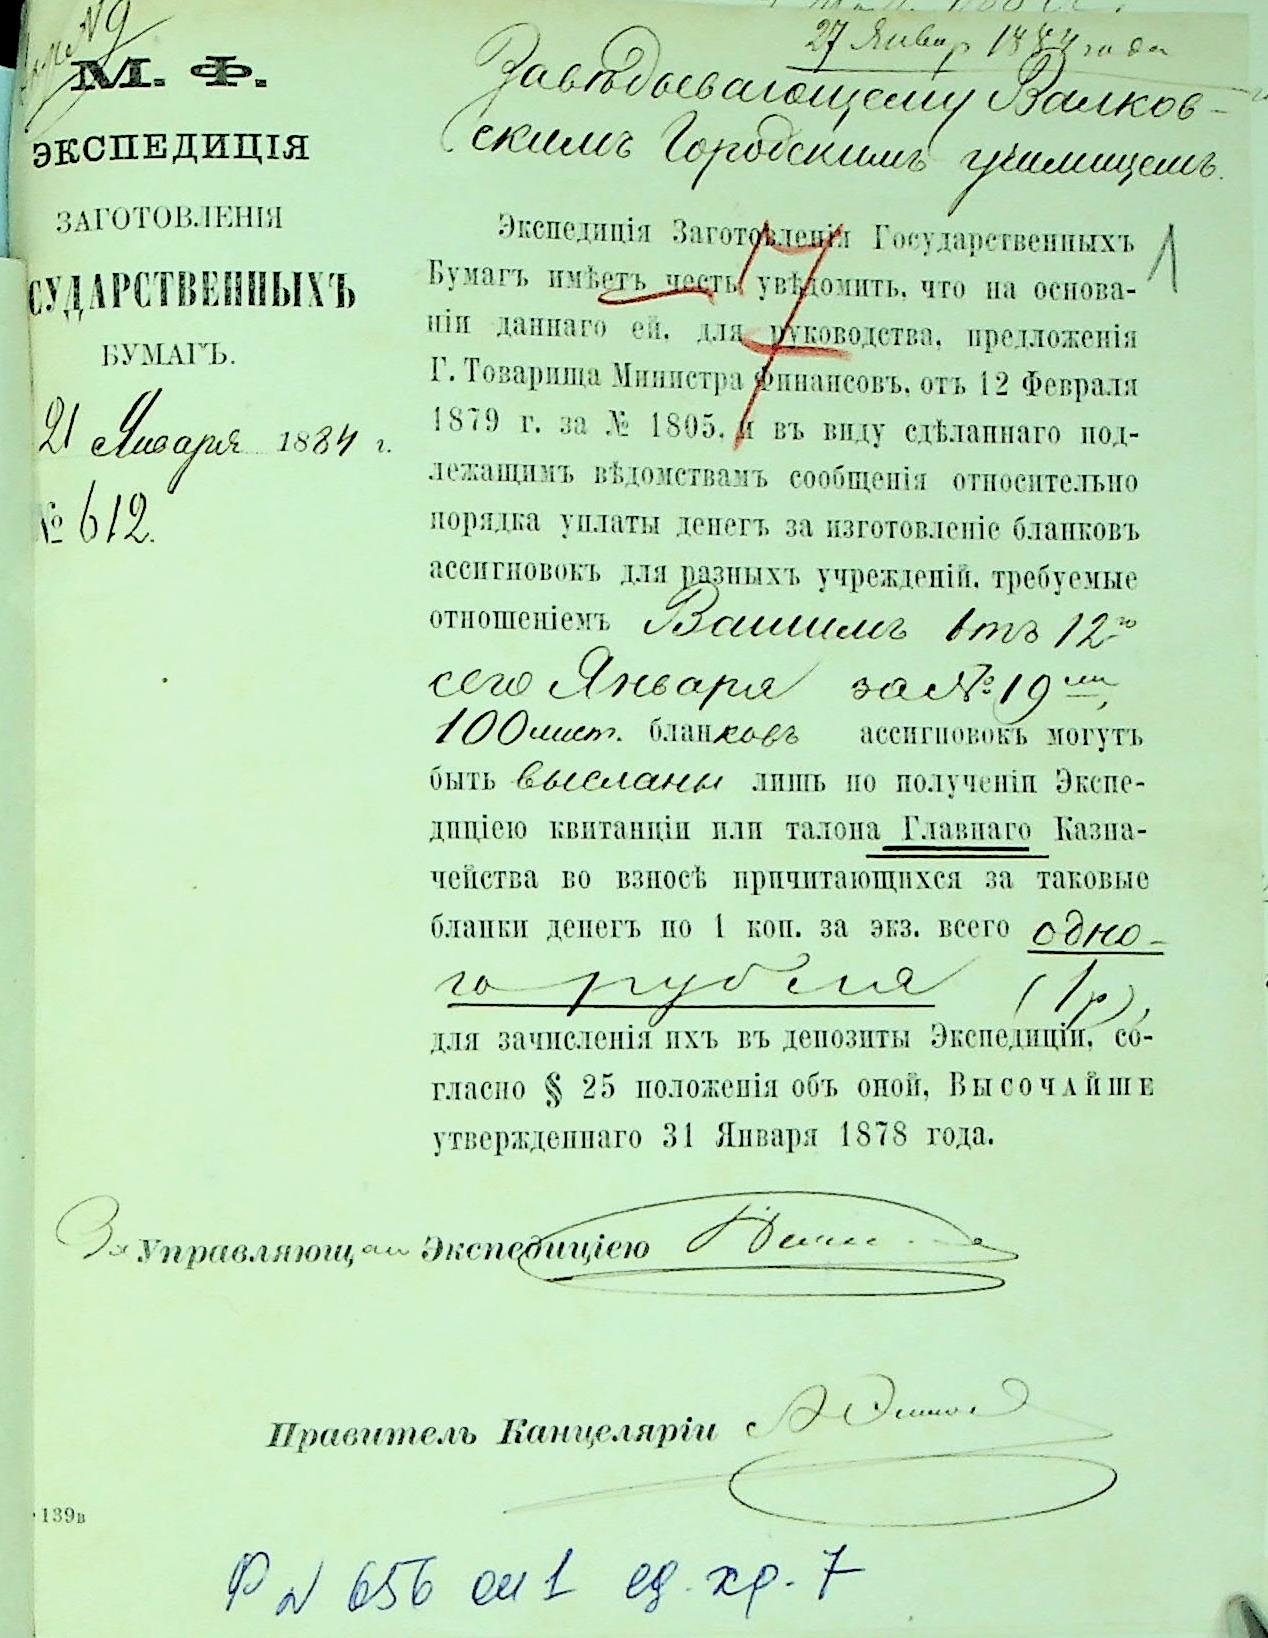 27 Январ 1884 года
М. Ф.
ЭКСПЕДИЦІЯ
ЗАГОТОВЛЕНІЯ
СУДАРСТВЕННЫХЪ
БУМАГЪ.
21 Января 1884 г.
№ 612.
Завѣдывающему Валков-
скимъ Городскимъ училищемъ.
1
7
Экспедиція Заготовленія Государственныхъ
Бумагъ имѣетъ честь увѣдомить, что на основа-
ніи даннаго ей, для руководства, предложенія
Г. Товарища Министра Финансовъ, отъ 12 Февраля
1879 г. за № 1805, и въ виду сдѣланнаго под-
лежащимъ вѣдомствамъ сообщенія относительно
порядка уплаты денегъ за изготовленіе бланковъ
ассигновокъ для разныхъ учрежденій, требуемые
отношеніемъ Вашимъ отъ 12го
сего Января за № 19ми,
100 лист. бланковъ ассигновокъ могутъ
быть высланы лишь по полученіи Экспе-
диціею квитанціи или талона Главнаго Казна-
чейства во взносѣ причитающихся за таковые
бланки денегъ по 1 коп. за экз. всего одно-
го рубля (1 р),
для зачисленія ихъ въ депозиты Экспедиціи, со-
гласно § 25 положенія объ оной, ВЫСОЧАЙШЕ
утвержденнаго 31 Января 1878 года.
За Управляющаго Экспедиціею
Правитель Канцеляріи
139в
Ф N 656 оп 1 ед. хр. 7